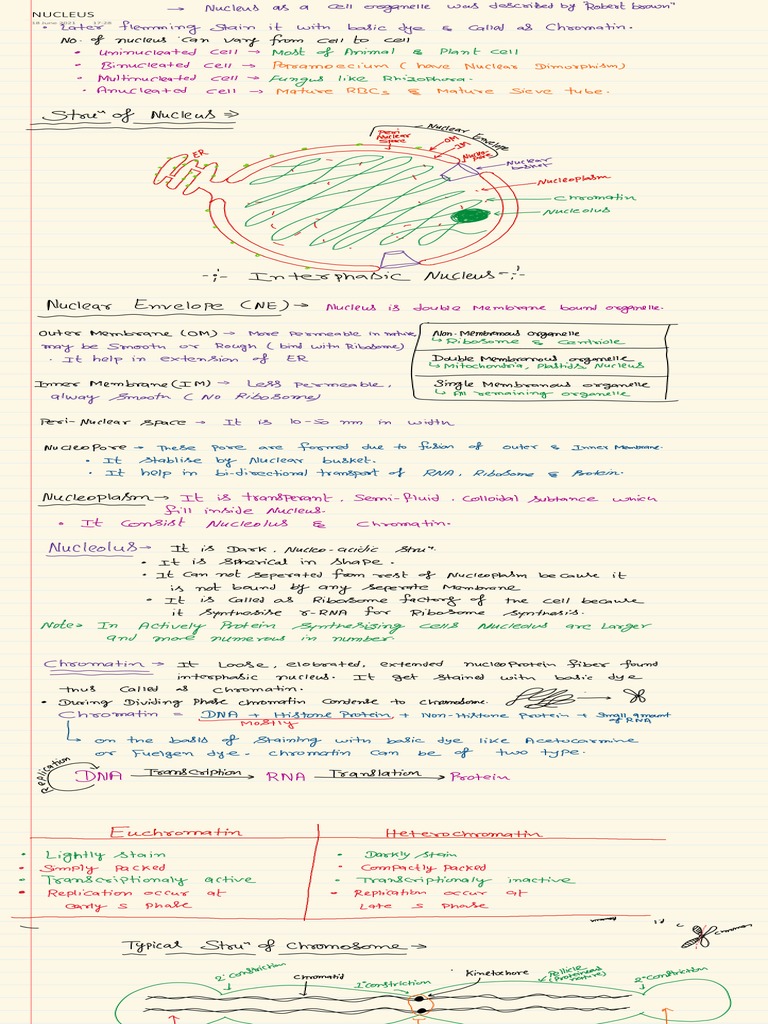 NUCLEUS
→ Nucleus as a cell organelle was described by "Robert brown"
18 June 2021 17:26
• Later flemming Stain it with basic dye & Called as Chromatin.
No. of nucleus can vary from cell to cell
• Uninucleated cell → Most of Animal & Plant cell
• Binucleated cell → Paramoecium (have Nuclear Dimorphism)
• Multinucleated cell → Fungus like Rhizophora.
• Anucleated cell → Mature RBCs & Mature Sieve tube.
Struⁿ of Nucleus ⇒
Nuclear Envelope
Peri-Nuclear Space
OM
IM
ER
Nuclear basket
Nucleoplasm
Chromatin
Nucleolus
-:- Interphasic Nucleus -:-
Nuclear Envelope (NE) → Nucleus is double Membrane bound organelle.
Outer Membrane (OM) → More Permeable in nature
may be Smooth or Rough (bind with Ribosome)
• It help in extension of ER
Non-Membranous organelle
↳ Ribosome & Centriole
Double Membranous organelle
↳ Mitochondria, Plastids, Nucleus
Single Membranous organelle
↳ All remaining organelle
Inner Membrane (IM) → Less Permeable,
alway Smooth (No Ribosome)
Peri-Nuclear Space → It is 10-50 nm in width
Nucleopore → These Pore are formed due to fusion of outer & Inner Membrane.
• It stablise by Nuclear busket.
• It help in bi-directional transport of RNA, Ribosome & Protein.
Nucleoplasm → It is transperant, Semi-fluid, Colloidal subtance which
fill inside Nucleus.
• It Consist Nucleolus & Chromatin.
Nucleolus → It is Dark, Nucleo-acidic struⁿ.
• It is Spherical in shape.
• It can not seperated from rest of Nucleoplasm because it
is not bound by any seperate Membrane
• It is called as Ribosome factory of the cell because
it Synthesise r-RNA for Ribosome synthesis.
Note → In Actively Protein Synthesizing cells Nucleolus are Larger
and more numerous in number.
Chromatin → It Loose, elobrated, extended nucleoprotein fiber found
interphasic nucleus. It get stained with basic dye
thus called as chromatin.
• During Dividing Phase chromatin Condense to chromosome.
Chromatin = DNA + Histone Protein + Non-Histone Protein + Small amount of RNA
Mostly
↳ on the basis of Staining with basic dye like Acetocarmine
or Fuelgen dye. chromatin can be of two type.
Replication
DNA Transcription → RNA Translation → Protein
Euchromatin Heterochromatin
• Lightly stain • Darkly stain
• Simply Packed • Compactly Packed
• Transcriptionaly active • Transcriptionaly inactive
• Replication occur at • Replication occur at
early S Phase Late S Phase
Typical Struⁿ of Chromosome →
2° Constriction
Chromatid
1° Constriction
Kinetochore
Pellicle (Proteinaceous nature)
2° Constriction